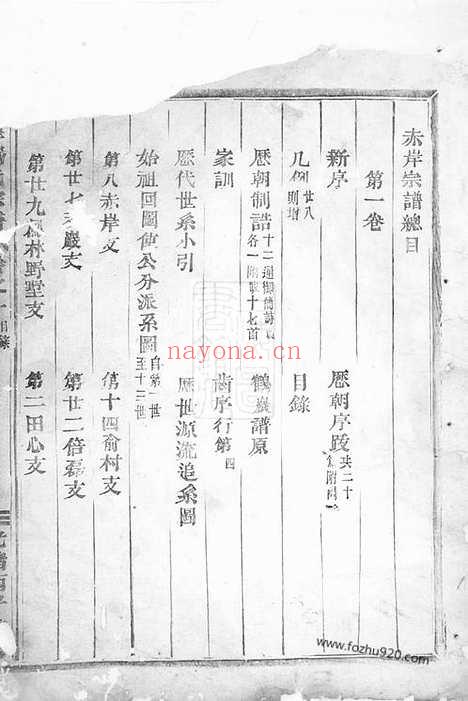 赤岸宗譜總目
第一卷
新序
歷朝序跋 共二十
凡例 廿八則增
目錄
歷朝制誥
鶴巖譜原
家訓
齒序行第 四
歷代世系小引
歷世源流追系圖
始祖回圖使公分派系圖 自第一世至十三世
第八赤岸支
第十四俞村支
第廿七 巖支
第廿二倍磊支
第廿九 林野墅支
第二田心支
nayona.cn
www.fozhu920.com